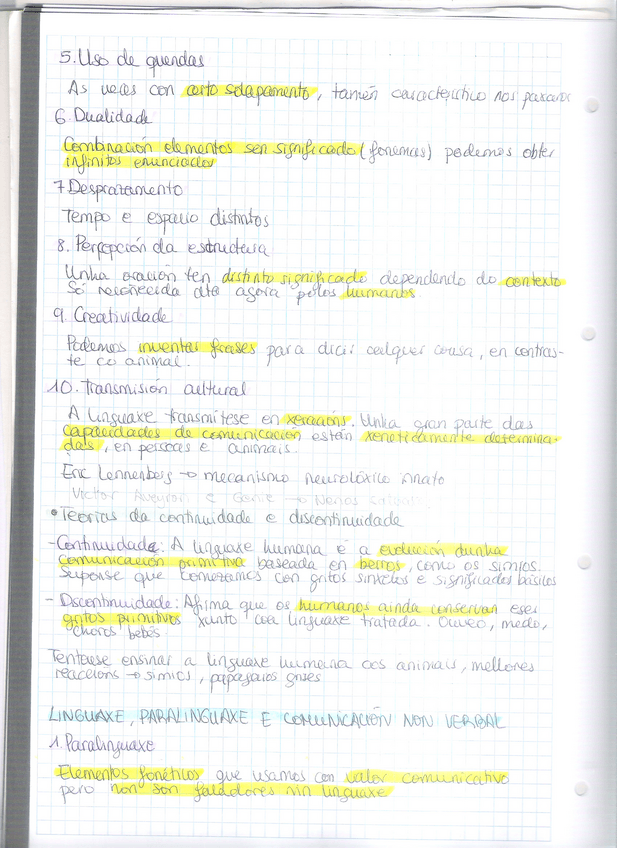 5. Uso de quendas
As veces con certo solapamento, tamén característico nos paxaros
6. Dualidade
Combinación elementos sen significado (fonemas) podemos obter
infinitos enunciados
7 Desprazamento
Tempo e espacio distintos
8. Percepción da estructura
Unha oración ten distinto significado dependendo do contexto
Só recoñecida ata agora polos humanos.
9. Creatividade
Podemos inventar frases para dicir calquer cousa, en contras-
te co animal.
10. Transmisión cultural
A linguaxe transmítese en xeracións. Unha gran parte das
capacidades de comunicación están xeneticamente determina-
das, en persoas e animais.
Eric Lennenberg → mecanismo neurolóxico innato
Victor Aveyron e Genie → Nenos
• Teorías da continuidade e discontinuidade
- Continuidade: A linguaxe humana é a evolución dunha
comunicación primitiva baseada en berros, como os simios.
Suponse que comezamos con gritos sinxelos e significados básicos
- Discontinuidade: Afirma que os humanos ainda conservan eses
gritos primitivos xunto coa linguaxe tratada. medo,
choros bebés
Tentouse ensinar a linguaxe humana aos animais, mellores
reaccions → simios, papagaios grises
LINGUAXE, PARALINGUAXE E COMUNICACIÓN NON VERBAL
1. Paralinguaxe
Elementos fonéticos que usamos con valor comunicativo
pero non son faladores nin linguaxe